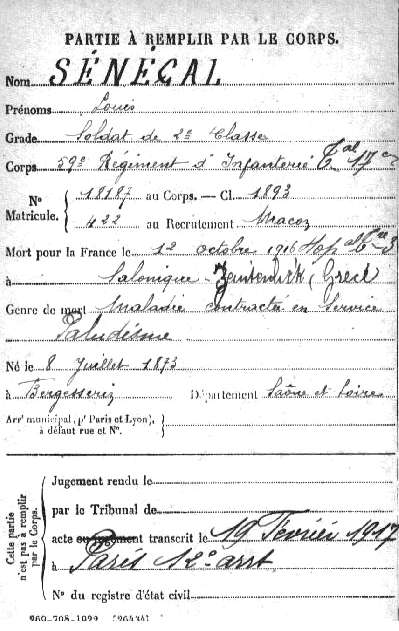 PARTIE À REMPLIR PAR LE CORPS.
Nom SÉNÉÇAL
Prénoms Louis
Grade Soldat de 2e Classe
Corps 59e Régiment d'Infanterie Tal 17e
N° Matricule. { 18187 au Corps. — Cl. 1893
422 au Recrutement Macon
Mort pour la France le 1er octobre 1916 Hopal Tre 3
à Salonique - Zeitenlick (Grece
Genre de mort Maladie contractée en Service
Paludisme
Né le 8 Juillet 1873
à Bergesserin Département Saône et Loire
Arrt municipal, (pr Paris et Lyon), à défaut rue et N°.
Cette partie n'est pas à remplir par le Corps.
Jugement rendu le
par le Tribunal de
acte ou jugement transcrit le 19 Février 1917
à Paris 12e arrt
N° du registre d'état civil